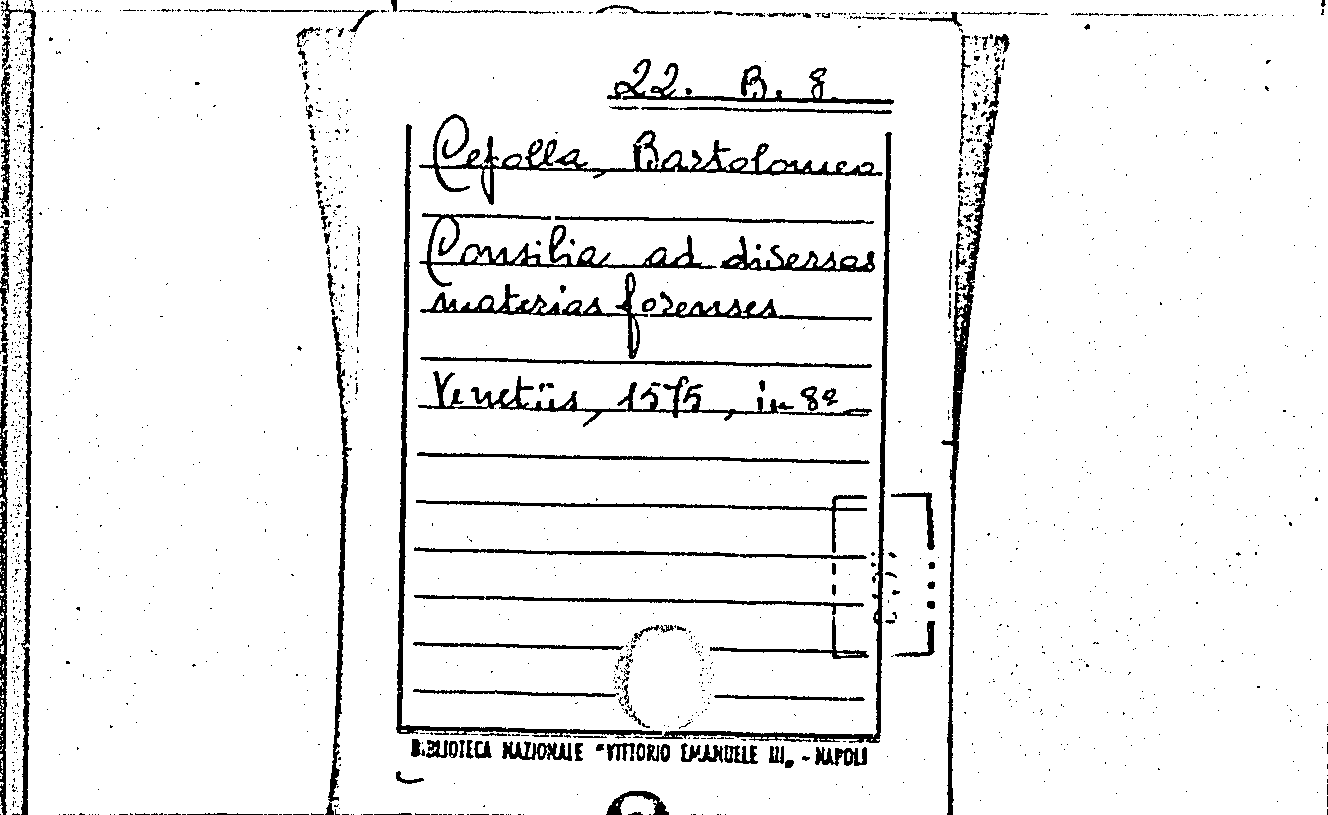 22. B. 8
Cefolla, Bartolomeo
Consilia ad diversas
materias forenses
Venetiis, 1575, in 8º
BIBLIOTECA NAZIONALE "VITTORIO EMANUELE III„ - NAPOLI